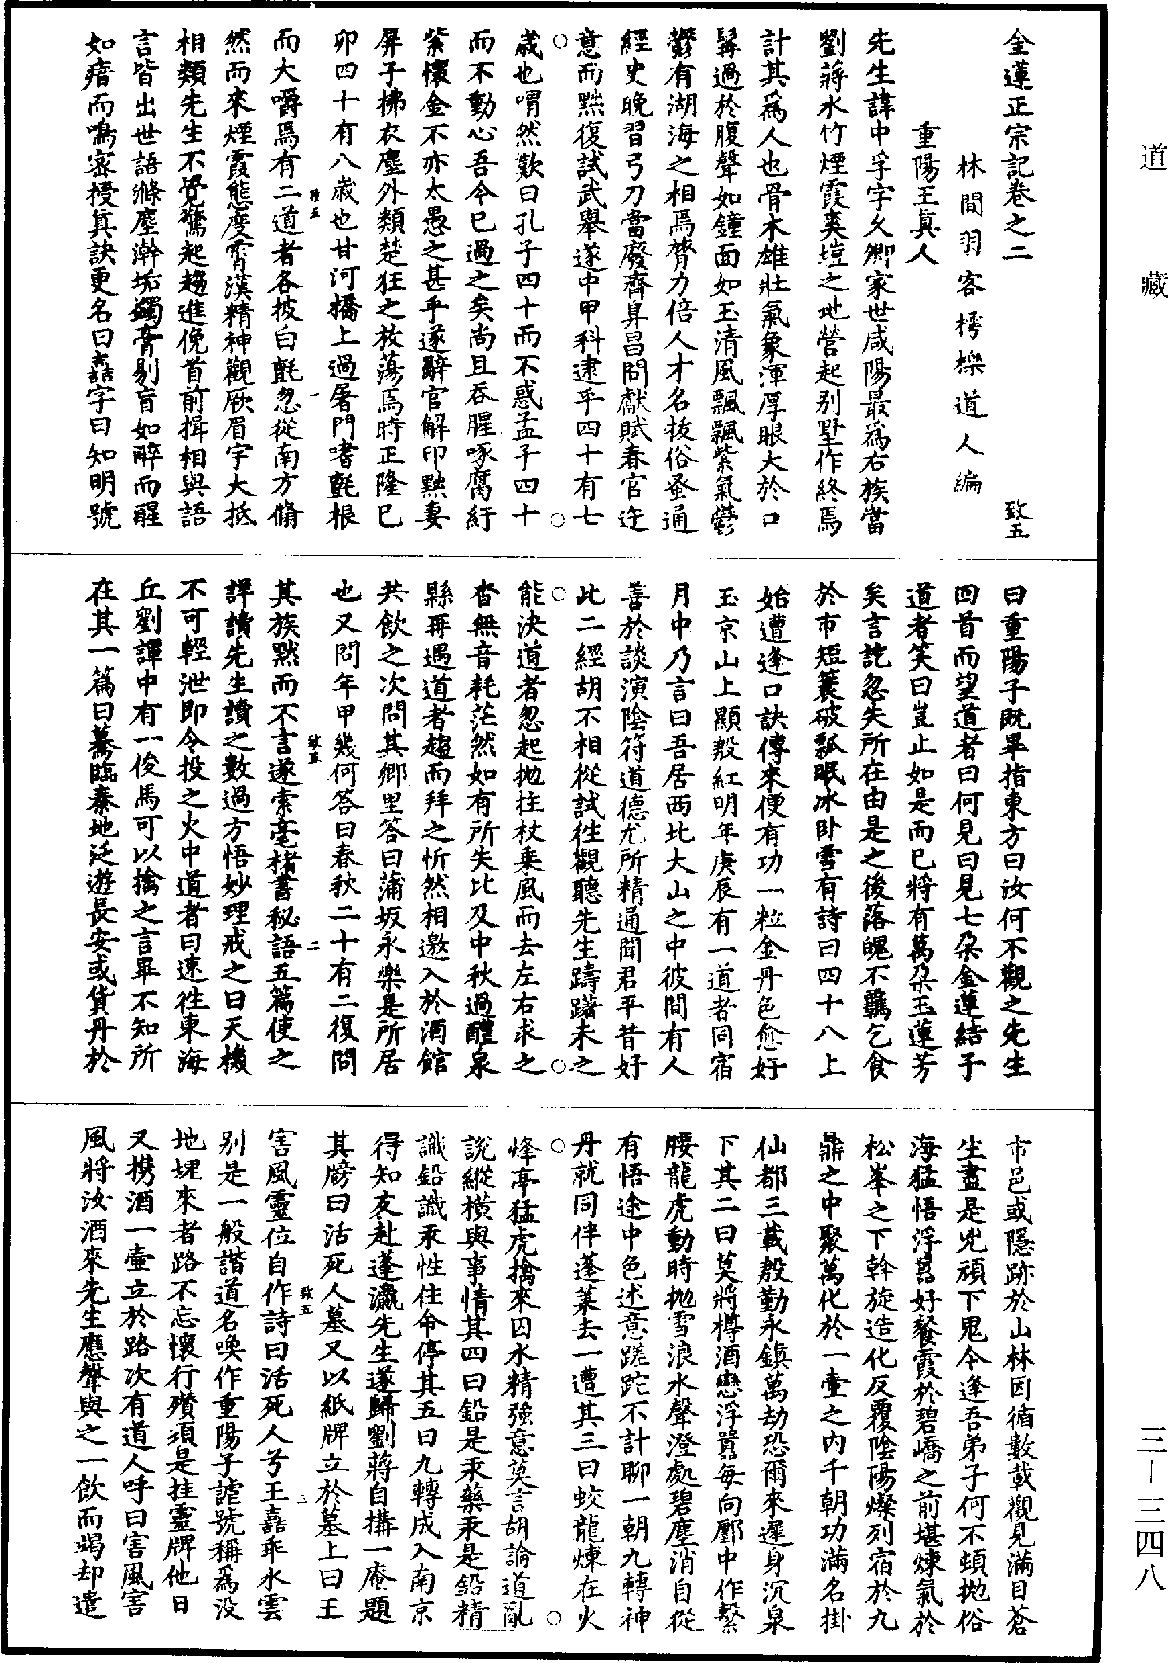 道藏
三—三四八
金蓮正宗記卷之二
致五
林間羽客樗櫟道人編
重陽王真人
先生諱中孚字允卿家世咸陽最為右族當
劉蔣水竹煙霞爽塏之地營起別墅作終焉
計其為人也骨木雄壯氣象渾厚眼大於口
髯過於腹聲如鐘面如玉清風飄飄紫氣鬱
鬱有湖海之相焉膂力倍人才名拔俗蚤通
經史晚習弓刀當廢齊阜昌間獻賦春官迕
意而黜復試武舉遂中甲科逮乎四十有七
歲也喟然歎曰孔子四十而不惑孟子四十
而不動心吾今已過之矣尚且吞腥啄腐紆
紫懷金不亦太愚之甚乎遂辭官解印黜妻
屏子拂衣塵外類楚狂之放蕩焉時正隆己
卯四十有八歲也甘河橋上過屠門嗜氈根
而大嚼焉有二道者各披白氈忽從南方脩
然而來煙霞態度霄漢精神觀厥眉宇大抵
相類先生不覺驚起趨進俛首前揖相與語
言皆出世語滌塵澣垢蠲膏剔盲如醉而醒
如瘖而鳴密授真訣更名曰嚞字曰知明號
曰重陽子既畢指東方曰汝何不觀之先生
四首而望道者曰何見曰見七朵金蓮結子
道者笑曰豈止如是而已將有萬朵玉蓮芳
矣言訖忽失所在由是之後落魄不羈乞食
於市短蓑破瓢眠冰卧雪有詩曰四十八上
始遭逢口訣傳來便有功一粒金丹色愈好
玉京山上顯殷紅明年庚辰有一道者同宿
月中乃言曰吾居西北大山之中彼間有人
善於談演陰符道德尤所精通聞君平昔好
此二經胡不相從試往觀聽先生躊躇未之
能決道者忽起拋拄杖乘風而去左右求之
杳無音耗茫然如有所失比及中秋過醴泉
縣再遇道者趨而拜之忻然相邀入於酒館
共飲之次問其鄉里答曰蒲坂永樂是所居
也又問年甲幾何答曰春秋二十有二復問
其族黙而不言遂索毫楮書秘語五篇使之
詳讀先生讀之數過方悟妙理戒之曰天機
不可輕泄即令投之火中道者曰速往東海
丘劉譚中有一俊馬可以擒之言畢不知所
在其一篇曰驀臨秦地泛遊長安或貨丹於
市邑或隱跡於山林因循數載觀見滿目蒼
生盡是兇頑下鬼今逢吾弟子何不頓拋俗
海猛悟浮囂好餐霞於碧嶠之前堪煉氣於
松峯之下斡旋造化反覆陰陽燦列宿於九
鼎之中聚萬化於一壺之內千朝功滿名掛
仙都三載殷勤永鎮萬劫恐爾來遲身沉泉
下其二曰莫將樽酒戀浮囂每向鄽中作繫
腰龍虎動時拋雪浪水聲澄處碧塵消自從
有悟途中色述意蹉跎不計聊一朝九轉神
丹就同伴蓬萊去一遭其三曰蛟龍煉在火
烽亭猛虎擒來囚水精強意莫言胡論道亂
說縱橫與事情其四曰鉛是汞藥汞是鉛精
識鉛識汞性住命停其五曰九轉成入南京
得知友赴蓬瀛先生遂歸劉蔣自搆一庵題
其牓曰活死人墓又以紙牌立於墓上曰王
害風靈位自作詩曰活死人兮王嚞乖水雲
別是一般諧道名喚作重陽子謔號稱為沒
地埋來者路不忘懷行殯須是挂靈牌他日
又携酒一壺立於路次有道人呼曰害風害
風將汝酒來先生應聲與之一飲而竭却遣